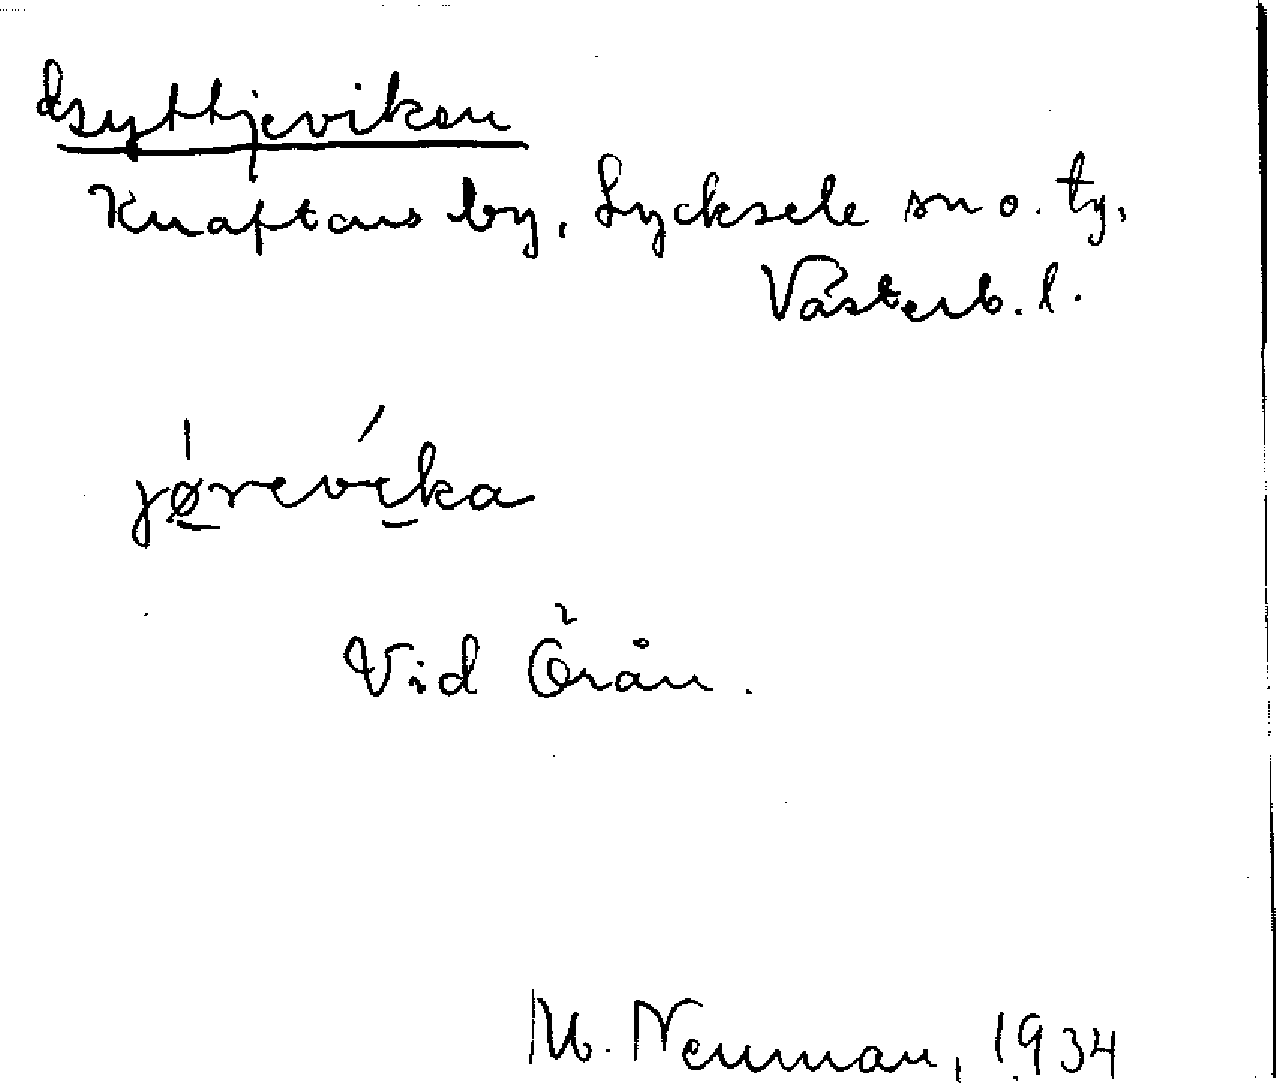 Knaftens by, Lycksele sn o. tg,
Västerb. l.
jø̱reve̱ka
Vid Örån.
M. Neuman, 1934